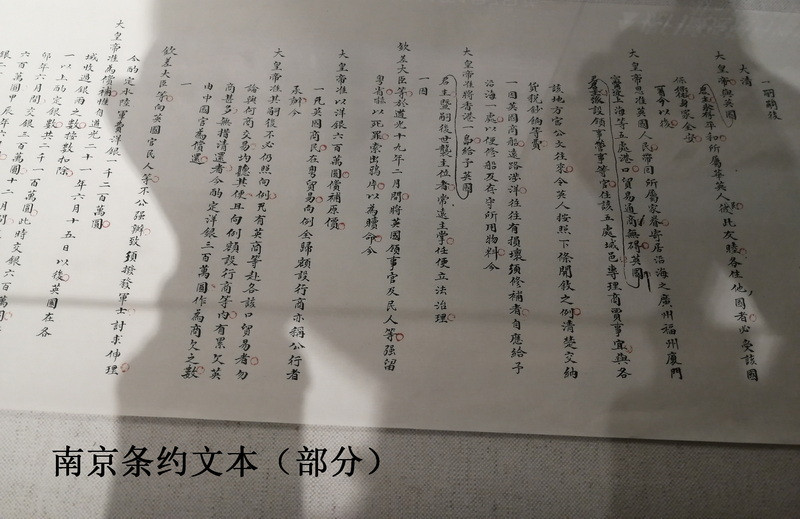 一嗣後
大清
大皇帝與英國
君主永存平和所屬華英人民彼此友睦各住他國者必受該國
保佑身家全安
一自今以後
大皇帝恩准英國人民帶同所屬家眷寄居沿海之廣州福州廈門
寧波上海等五處港口貿易通商無礙英國
君主派設領事管事等官住該五處城邑專理商賈事宜與各
該地方官公文往來令英人按照下條開敘之例清楚交納
貨稅鈔餉等費
一因英國商船遠路涉洋往往有損壞須修補者自應給予
沿海一處以便修船及存守所用物料今
大皇帝准將香港一島給予英國
君主暨嗣後世襲主位者常遠主掌任便立法治理
一因
欽差大臣等於道光十九年二月間將英國領事官及民人等強留
粵省嚇以死罪索出鴉片以為贖命今
大皇帝准以洋銀六百萬圓償補原價
一凡英國商民在粵貿易向例全歸額設行商亦稱公行者
承辦今
大皇帝准其嗣後不必仍照向例凡有英商等赴各該口貿易者勿
論與何商交易均聽其便且向例額設行商等內有累欠英
商甚多無措清還者今酌定洋銀三百萬圓作為商欠之數
由中國官為償還
一
欽差大臣等向英國官民人等不公強辦致須撥發軍士討求伸理
今酌定水陸軍費洋銀一千二百萬圓
大皇帝准為償補惟自道光二十一年六月十五日以後英國在各
城收過銀兩之數按數扣除
一以上酌定銀數共二千一百萬圓此時交銀六百萬圓
卯年六月間交銀三百萬圓
南京条约文本（部分）